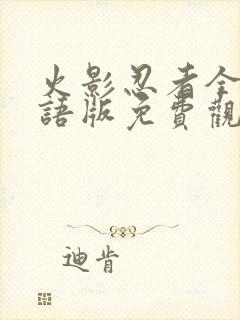 火影忍者全
語版免費觀
迪肯